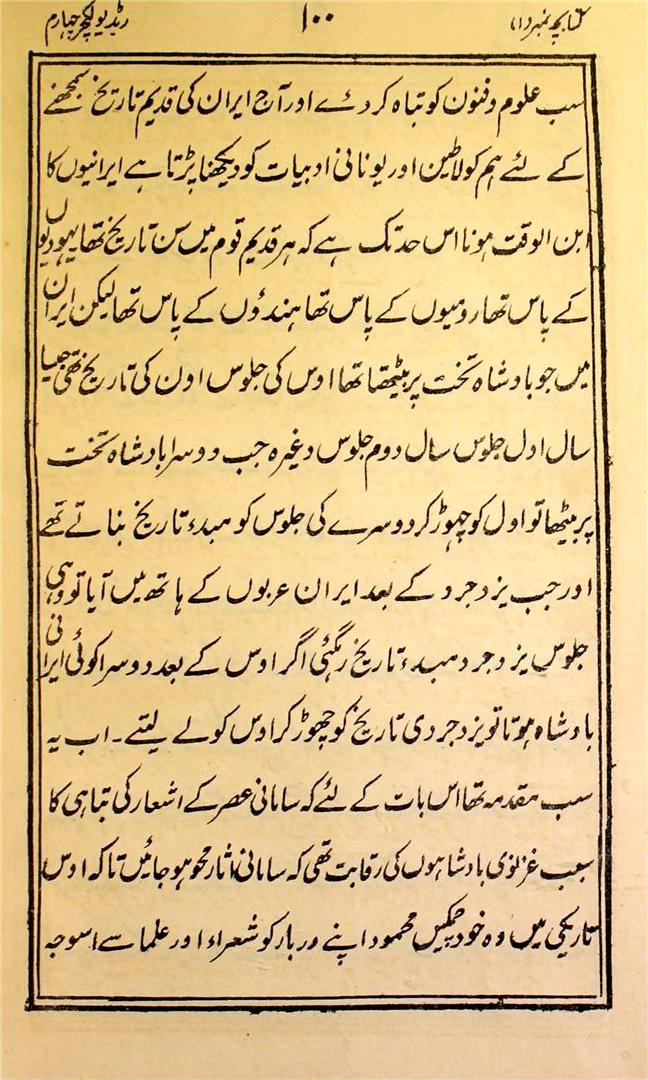 کتابچہ نمبر (۱) ۱۰۰ ریڈیو لکچر چہارم
سب علوم و فنون کو تباہ کر دئے اور آج ایران کی قدیم تاریخ سمجھنے
کے لئے ہم کو لاطین اور یونانی ادبیات کو دیکھنا پڑتا ہے ایرانیوں کا
ابن الوقت ہونا اس حد تک ہے کہ ہر قدیم قوم میں سن تاریخ تھا یہودیوں
کے پاس تھا رومیوں کے پاس تھا ہندؤں کے پاس تھا لیکن ایران
میں جو بادشاہ تخت پر بیٹھتا تھا اوس کی جلوس اون کی تاریخ تھی جیسا
سال اول جلوس سال دوم جلوس وغیرہ جب دوسرا بادشاہ تخت
پر بیٹھا تو اول کو چھوڑ کر دوسرے کی جلوس کو مبدء تاریخ بناتے تھے
اور جب یزدجرد کے بعد ایران عربوں کے ہاتھ میں آیا تو وہی
جلوس یزدجرد مبدء تاریخ رہگئی اگر اوس کے بعد دوسرا کوئی ایرانی
بادشاہ ہوتا تو یزدجردی تاریخ کو چھوڑ کر اوس کو لے لیتے۔ اب یہ
سب مقدمہ تھا اس بات کے لئے کہ سامانی عصر کے اشعار کی تباہی کا
سبب غزنوی بادشاہوں کی رقابت تھی کہ سامانی آثار محو ہو جائیں تاکہ اوس
تاریکی میں وہ خود چمکیں محمود اپنے دربار کو شعراء اور علما سے اسوجہ